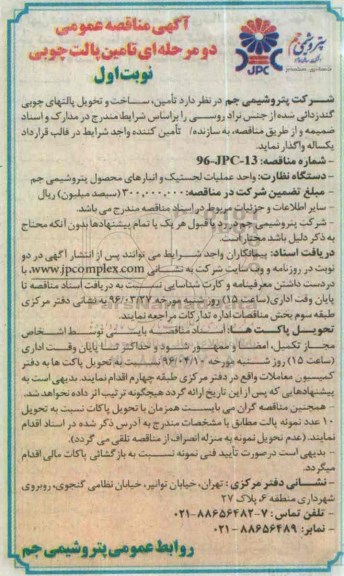 آگهی مناقصه عمومی
دو مرحله ای تامین پالت چوبی
نوبت اول
پتروشیمی جم
JPC
شرکت پتروشیمی جم در نظر دارد تأمین، ساخت و تحویل پالتهای چوبی
گندزدائی شده از جنس نراد روسی را براساس شرایط مندرج در مدارک و اسناد
ضمیمه و از طریق مناقصه، به سازنده/ تأمین کننده واجد شرایط در قالب قرارداد
یکساله واگذار نماید.
- شماره مناقصه: 96-JPC-13
- دستگاه نظارت: واحد عملیات لجستیک و انبارهای محصول پتروشیمی جم
- مبلغ تضمین شرکت در مناقصه: ۳۰۰,۰۰۰,۰۰۰ (سیصد میلیون) ریال
- سایر اطلاعات و جزئیات مربوط در اسناد مناقصه مندرج می باشد.
- شرکت پتروشیمی جم در رد یا قبول هر یک یا تمام پیشنهادها بدون آنکه محتاج
به ذکر دلیل باشد مختار است.
دریافت اسناد: پیمانکاران واجد شرایط می توانند پس از انتشار آگهی در دو
نوبت در روزنامه و وب سایت شرکت به نشانی www.jpcomplex.com، با
دردست داشتن معرفینامه و کارت شناسایی نسبت به دریافت اسناد مناقصه تا
پایان وقت اداری (ساعت ۱۵) روز شنبه مورخه ۹۶/۰۳/۲۷ به نشانی دفتر مرکزی
طبقه سوم بخش مناقصات اداره تدارکات مراجعه نمایند.
تحویل پاکت ها: اسناد مناقصه بایستی توسط اشخاص
مجاز تکمیل، امضا و ممهور شود و حداکثر تا پایان وقت اداری
(ساعت ۱۵) روز شنبه مورخه ۹۶/۰۴/۱۰ نسبت به تحویل پاکت ها به دفتر
کمیسیون معاملات واقع در دفتر مرکزی طبقه چهارم اقدام نمایند. بدیهی است به
پیشنهادهایی که پس از این تاریخ ارائه گردد هیچگونه ترتیب اثر داده نخواهد شد.
- همچنین مناقصه گران می بایست همزمان با تحویل پاکات نسبت به تحویل
۱۰ عدد نمونه پالت مطابق با مشخصات مندرج به آدرس ذکر شده در اسناد اقدام
نمایند. (عدم تحویل نمونه به منزله انصراف از مناقصه تلقی می گردد).
- بدیهی است در صورت تأیید فنی نمونه نسبت به بازگشائی پاکات مالی اقدام
میگردد.
- نشانی دفتر مرکزی: تهران، خیابان توانیر، خیابان نظامی گنجوی، روبروی
شهرداری منطقه ۶، پلاک ۲۷
- تلفن تماس: ۷-۸۸۶۵۶۴۸۲-۰۲۱
- نمابر: ۸۸۶۵۶۴۸۹-۰۲۱
روابط عمومی پتروشیمی جم